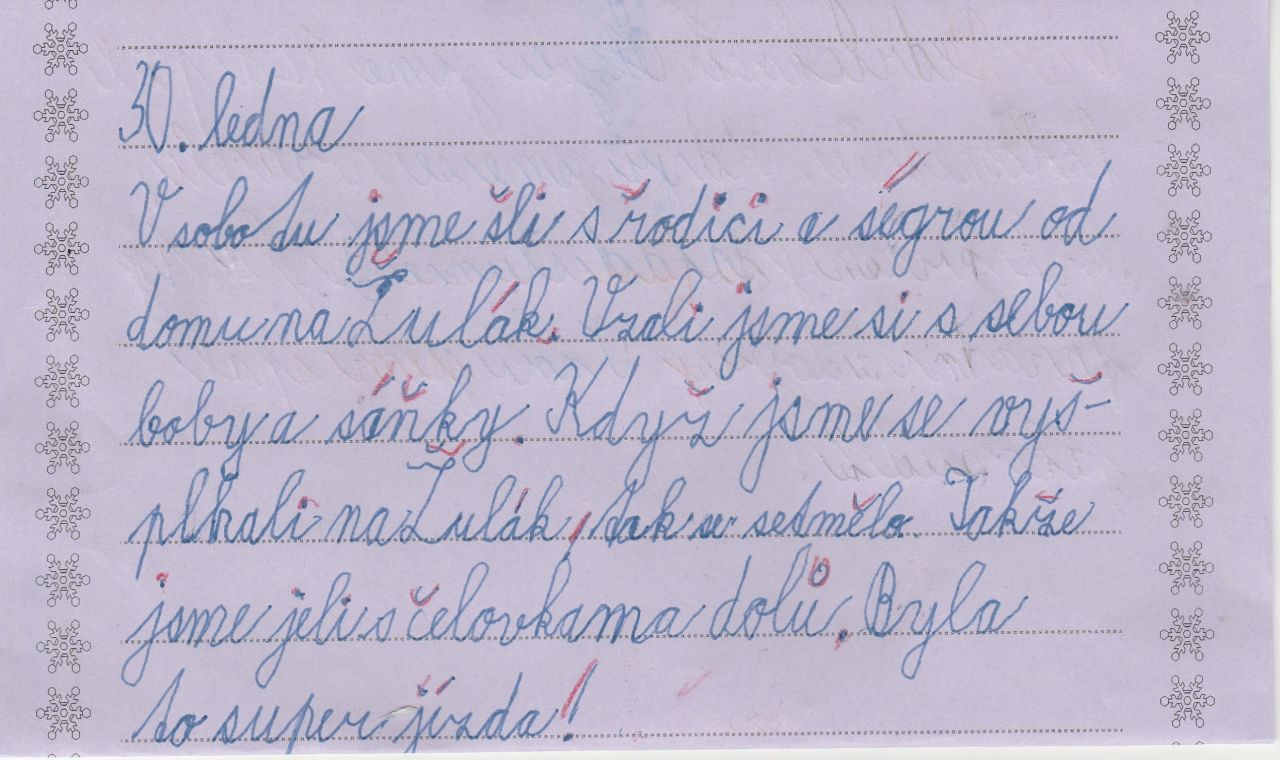 30. ledna
V sobotu jsme šli s rodiči a ségrou od
domu na Žulák. Vzali jsme si s sebou
boby a sáňky. Když jsme se vyš-
plhali na Žulák, tak se setmělo. Takže
jsme jeli s čelovkama dolů. Byla
to super jízda!